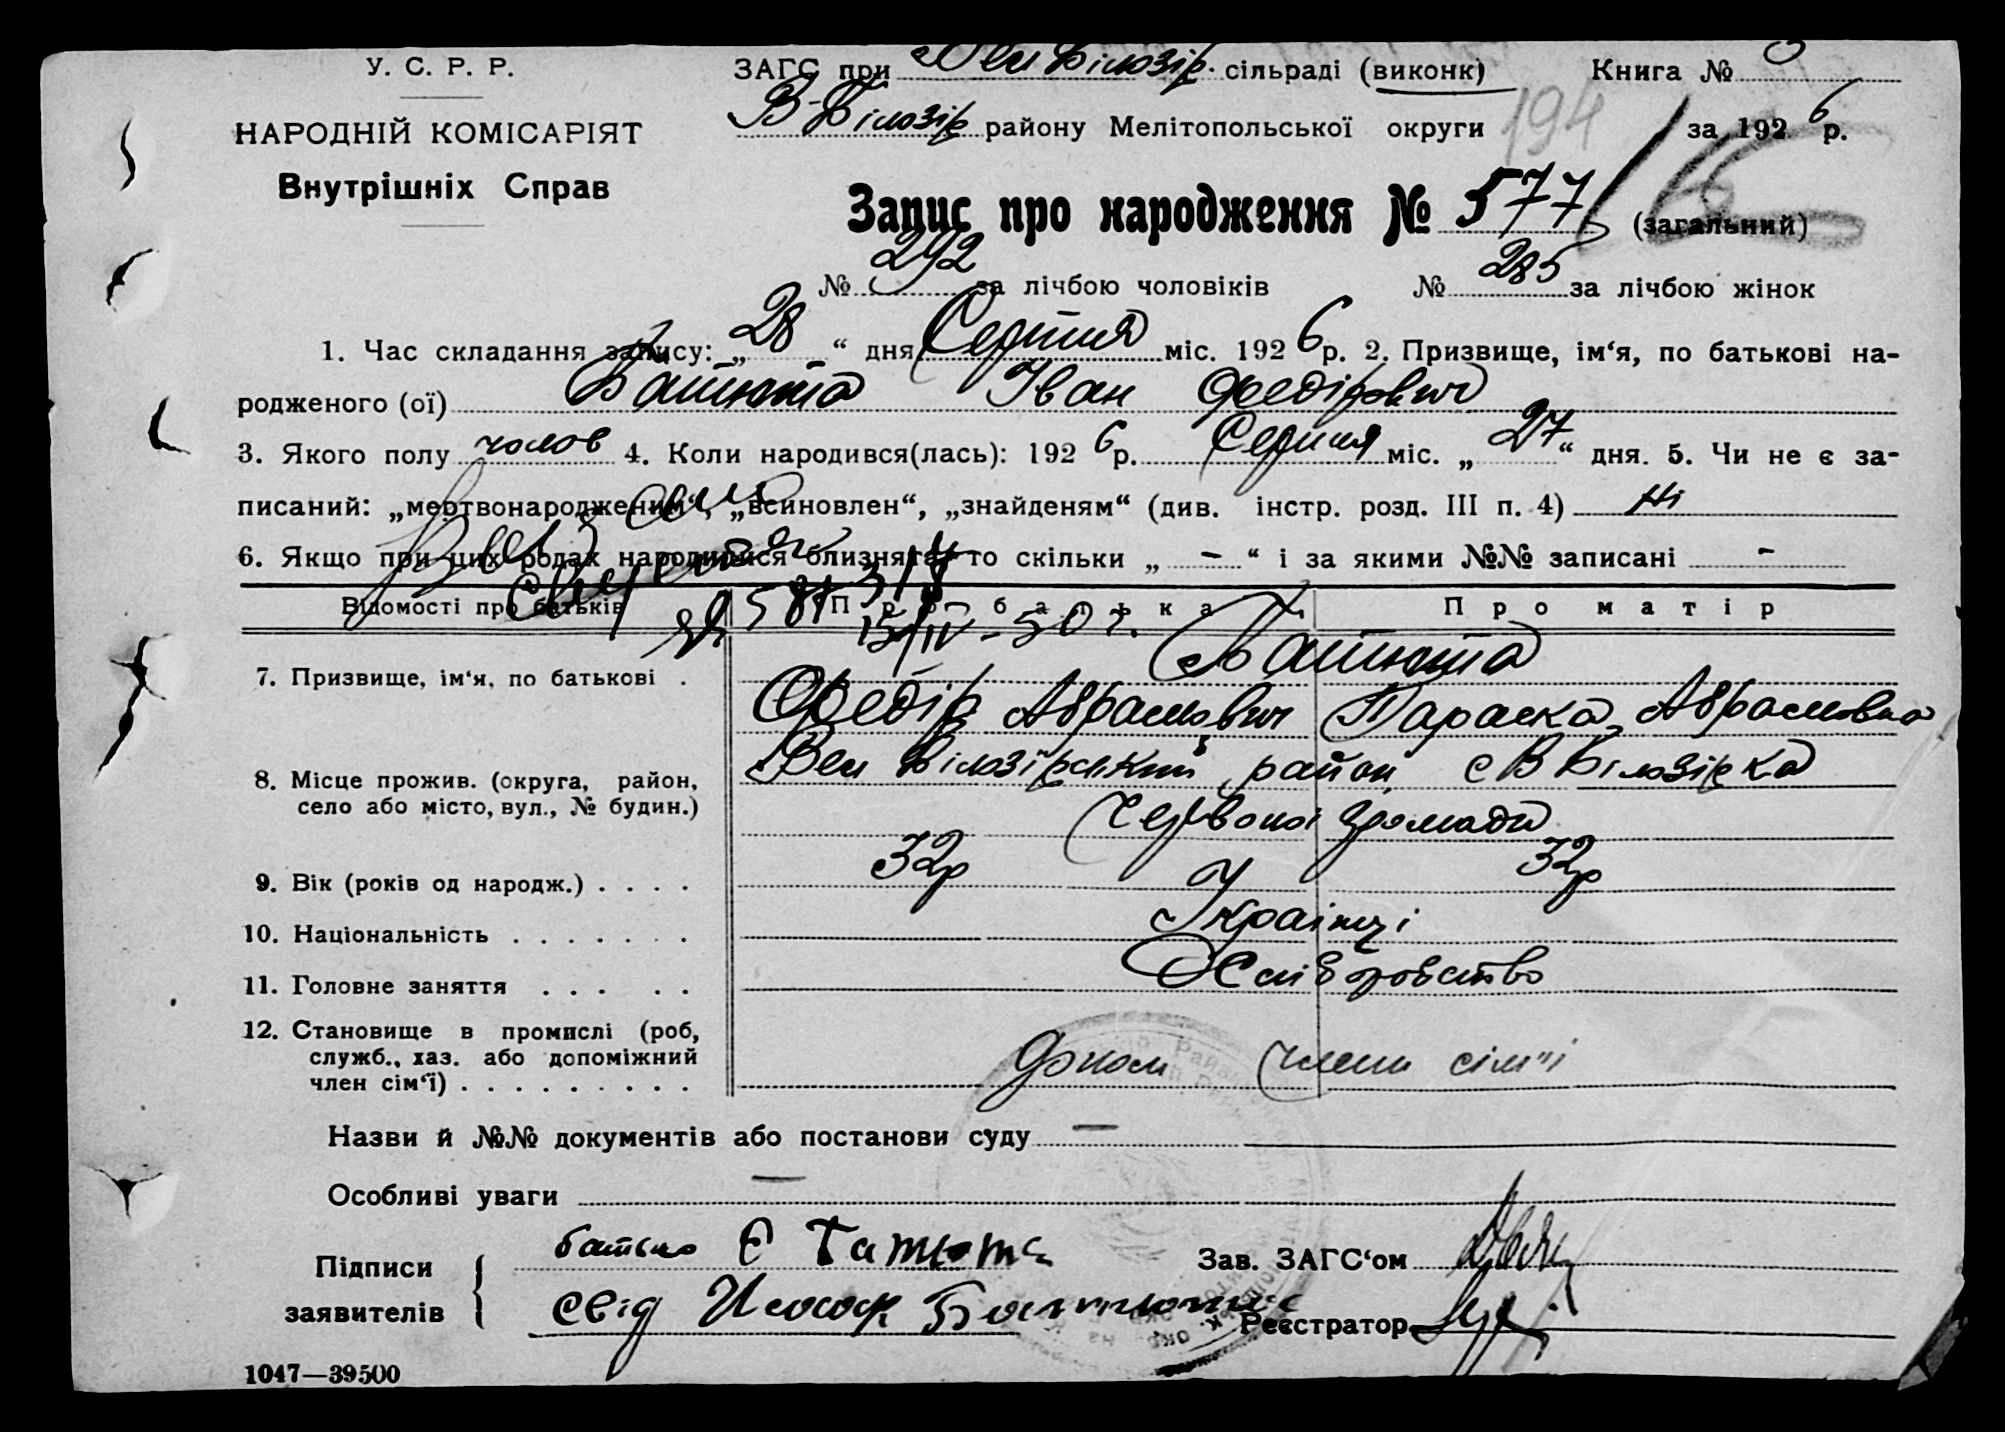 У. С. Р. Р.
НАРОДНІЙ КОМІСАРІЯТ
Внутрішніх Справ
ЗАГС при Вел Білозір. сільраді (виконк) Книга №
В-Білозір району Мелітопольської округи 194 за 1926 р.
Запис про народження № 577 (загальний)
№ 292 за лічбою чоловіків № 285 за лічбою жінок
1. Час складання запису: „28“ дня Серпня міс. 1926 р. 2. Призвище, ім‘я, по батькові на-
родженого (ої) Батюта Іван Федірович
3. Якого полу чолов 4. Коли народився(лась): 1926 р. Серпня міс. „27“ дня. 5. Чи не є за-
писаний: „мертвонародженим“, „всиновлен“, „знайденям“ (див. інстр. розд. III п. 4) Ні
6. Якщо при цих родах народилися близнята, то скільки „ - “ і за якими №№ записані -
15/IV-50 г.
Відомості про батьків Про батька Про матір
7. Призвище, ім‘я, по батькові . Батюта
Федір Абрамович Параска Абрамовна
8. Місце прожив. (округа, район, село або місто, вул., № будин.) Вел Білозірський район с В Білозірка
Червоної Громади
9. Вік (років од народж.) . . . . 32р 32р
10. Національність . . . . . . . Українці
11. Головне заняття . . . . . Хліборобство
12. Становище в промислі (роб, служб., хаз. або допоміжний член сім‘ї) . . . . . . . . . члени сім"ї
Назви й №№ документів або постанови суду —
Особливі уваги —
Підписи заявителів { батько Батюта
свід Батюта
Зав. ЗАГС‘ом
Реєстратор
1047—39500